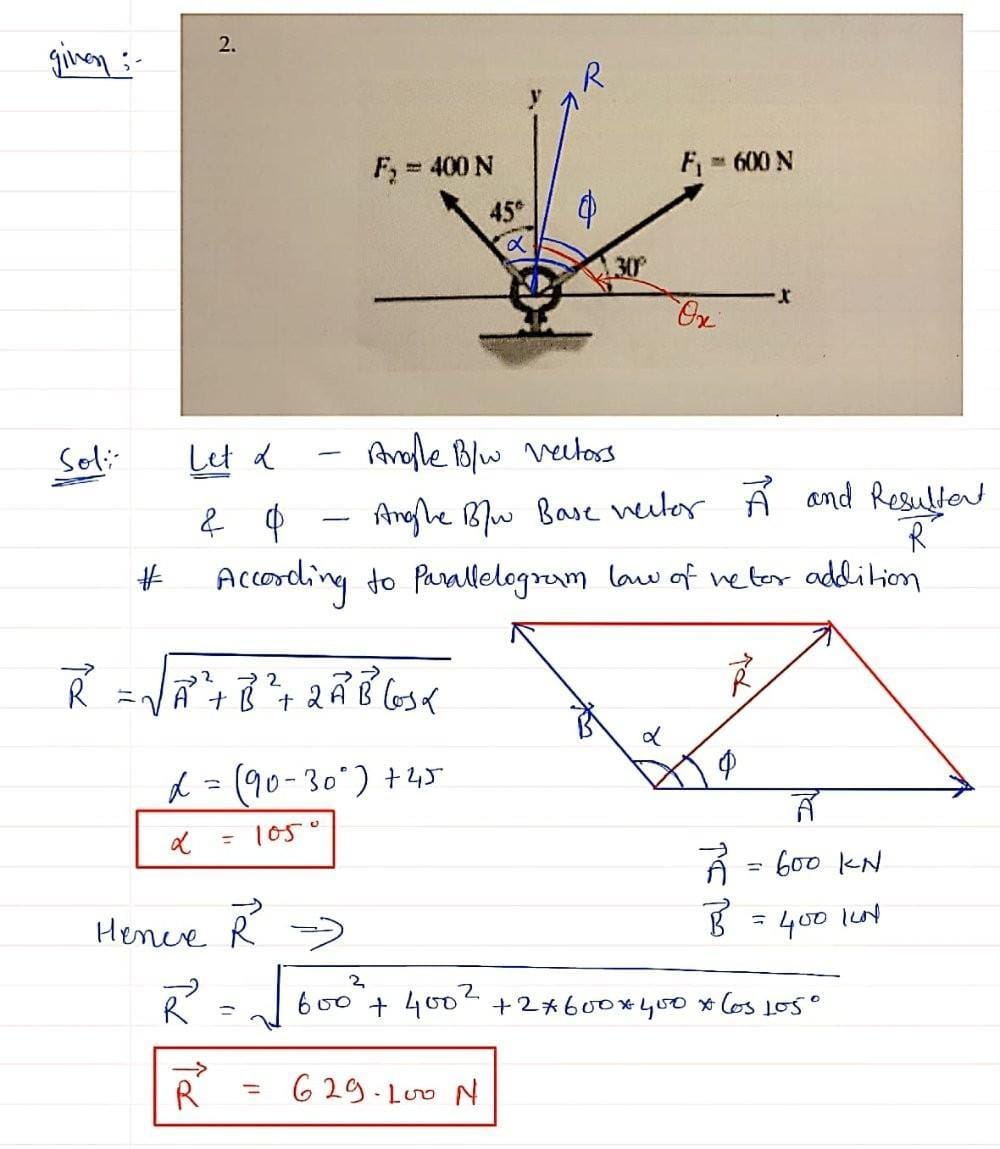 given :-
2.
R
y
F₂ = 400 N
F₁ = 600 N
45°
ϕ
α
30°
x
θx
Sol:-
Let α – Angle B/w vectors
& ϕ – Angle B/w Base vector A⃗ and Resultent R⃗
# According to Parallelogram law of vector addition
R⃗ = √A⃗² + B⃗² + 2A⃗B⃗ Cosα
R⃗
B⃗
α
ϕ
A⃗
α = (90-30°) + 45
α = 105°
A⃗ = 600 KN
B⃗ = 400 KN
Hence R⃗ ⇒
R⃗ = √600² + 400² + 2*600*400 * Cos 105°
R⃗ = 629.100 N